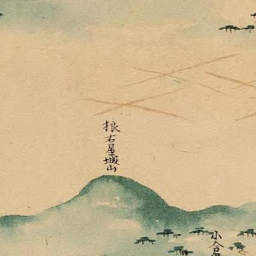 根古屋城山
小倉